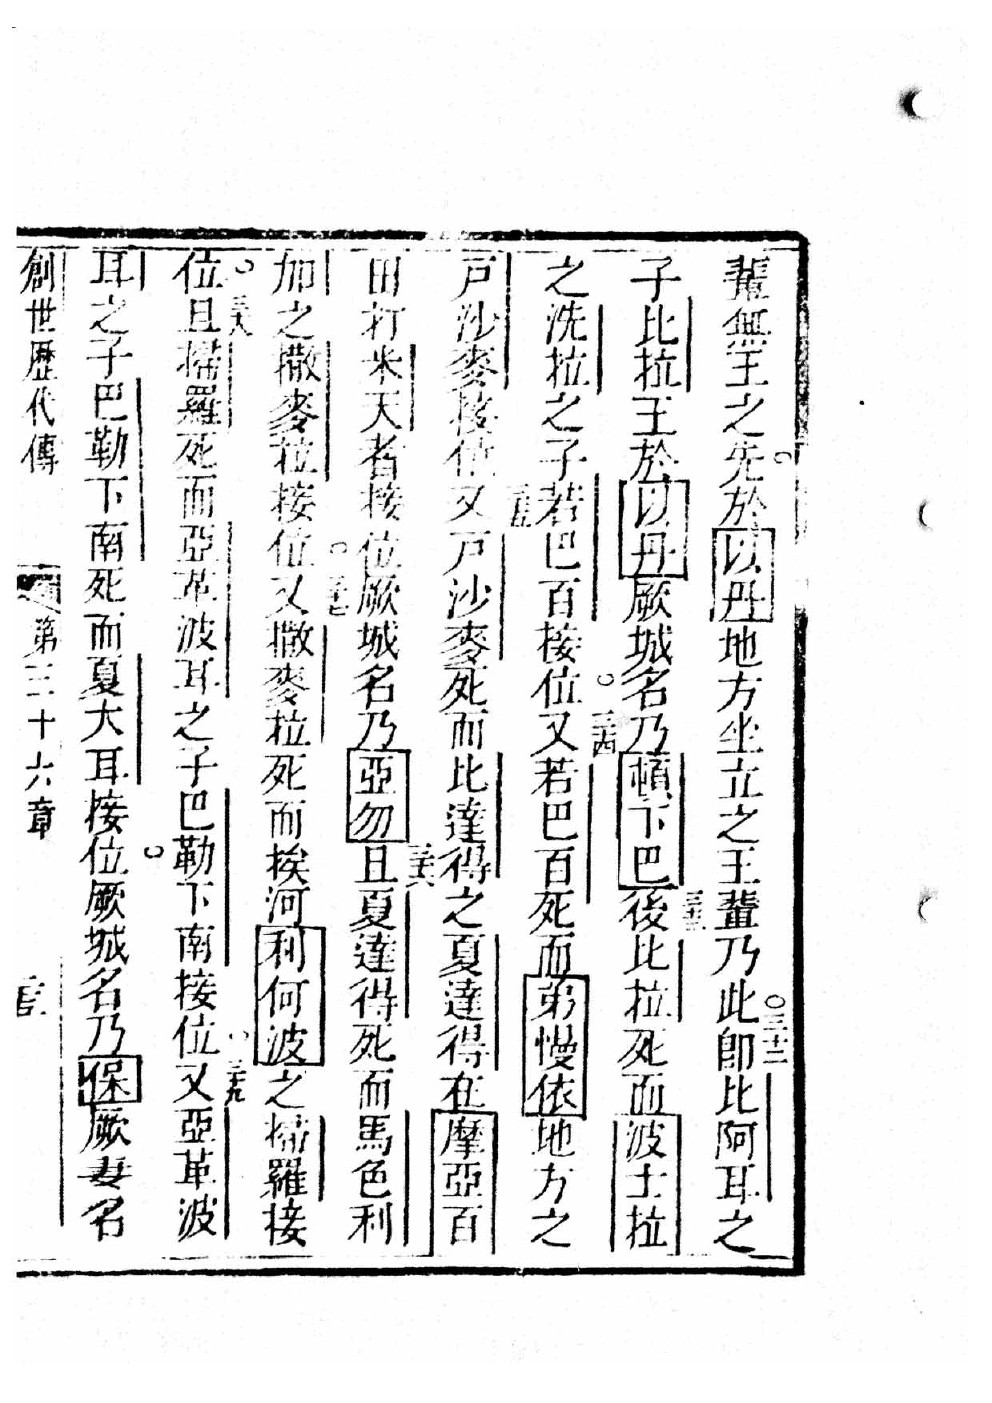 輩無王之先於以丹地方坐立之王輩乃此三十二卽比阿耳之
子比拉王於以丹厥城名乃頓下巴三十三後比拉死而波士拉
之洗拉之子若巴百接位三十四又若巴百死而弟慢依地方之
戶沙麥接位三十五又戶沙麥死而比達得之夏達得在摩亞百
田打米天者接位厥城名乃亞勿三十六且夏達得死而馬色利
加之撒麥拉接位三十七又撒麥拉死而挨河利何波之掃羅接
位三十八且掃羅死而亞革波耳之子巴勒下南接位三十九又亞革波
耳之子巴勒下南死而夏大耳接位厥城名乃保厥妻名
創世歷代傳 第三十六章